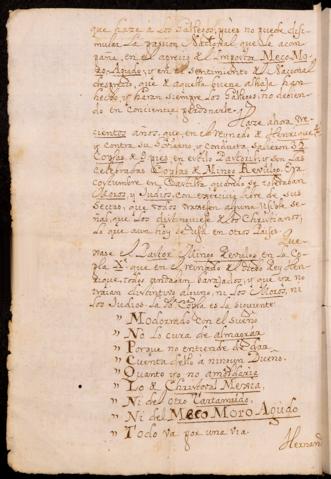 que haze a los Gallegos, pues no puede disi-
mular la passion Nacional que le acom-
paña, en el aprecio del Impostor Meco Mo-
ro Agudo, y en el sentimiento del Nacional
desprecio, que de aquella buena alhaja han
hecho, y haràn siempre los Gallegos, no debien-
do en Conciencia perdonarle.
Haze ahora tre-
cientos años, que en el reynado de Henrique 4º
y contra su Govierno, y conducta salieron 32
Coplas de 9 pies en estilo Pastoril, y son las
celebradas Coplas de Mingo Revulgo. Era
costumbre en Castilla quando se toleraban
Moros, y Judios, con exercicio libre de sus
Sectas, que todos traxesen alguna visible se-
ñal, que los distinguiese de los Christianos,
lo que aun hoy se usa en otros Paises.
Que-
xase el Pastor Mingo Revulgo en la Co-
pla que en el reynado del dicho Rey Hen-
rique, todos andaban barajados, y que ya no
traian distintivo alguno, ni los Moros, ni
los Judios. La dha Copla es la siguiente:
„ Modorrado con el sueño
„ No lo cura de almagrar
„ Porque no entiende de dar
„ Cuenta dello a ningun Dueño.
„ Quanto yo no amoldaria
„ Lo de Christoval Mexia,
„ Ni del otro Tartamudo,
„ Ni del Meco Moro Agudo
„ Todo va por una via.
Hernan